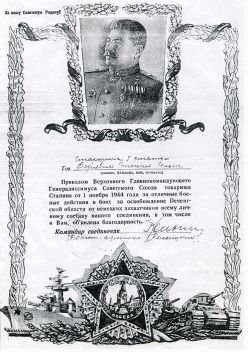 За нашу Советскую Родину!
Тов.
(звание, фамилия, имя, отчество)
Приказом Верховного Главнокомандующего
Генералиссимуса Советского Союза товарища
Сталина от 1 ноября 1944 года за отличные бое-
вые действия в боях за освобождение Печенг-
ской области от немецких захватчиков всему лич-
ному составу нашего соединения, в том числе
и Вам, объявлена благодарность.
Командир соединения